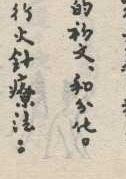 的衍文、和分化。
行火針療法：